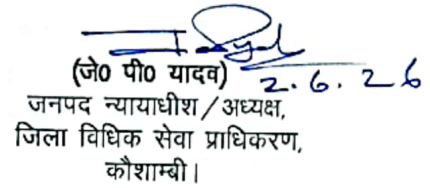 (जे0 पी0 यादव) 2.6.26
जनपद न्यायाधीश/अध्यक्ष,
जिला विधिक सेवा प्राधिकरण,
कौशाम्बी।